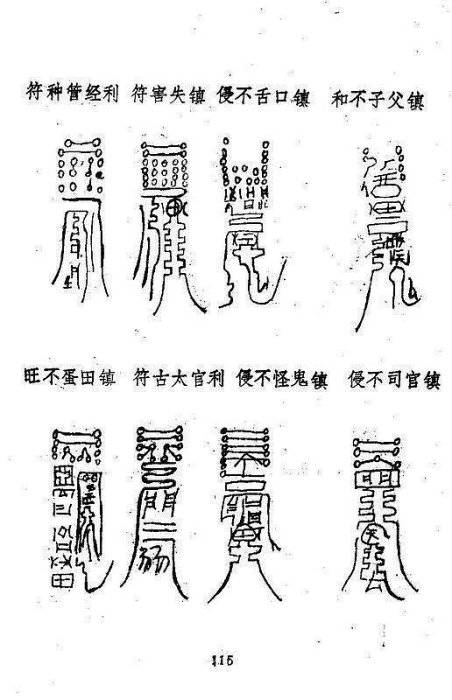 镇父子不和 镇口舌不侵 镇失害符 利经营种符
镇官司不侵 镇鬼怪不侵 利官太古符 镇田蛋不旺
115